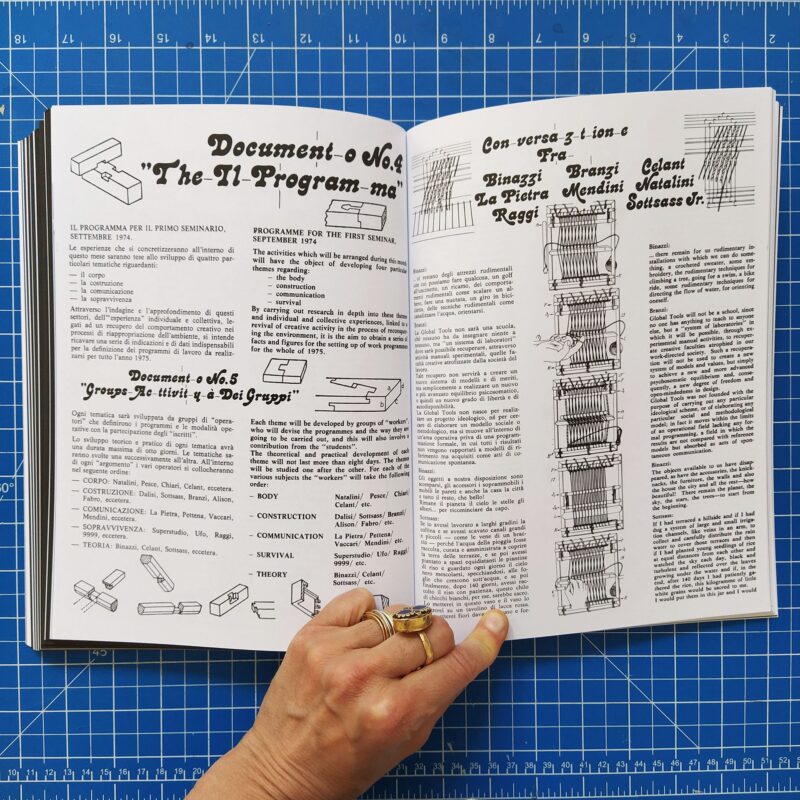 18 17 16 15 14 13 12 11 10 9 8 7 6 5 4 3 2
Document-o No.4
"The-Il-Program-ma"
IL PROGRAMMA PER IL PRIMO SEMINARIO,
SETTEMBRE 1974.
Le esperienze che si concretizzeranno all'interno di
questo mese saranno tese allo sviluppo di quattro par-
ticolari tematiche riguardanti:
— il corpo
— la costruzione
— la comunicazione
— la sopravvivenza
Attraverso l'indagine e l'approfondimento di questi
settori, dell'"esperienza" individuale e collettiva, le-
gati ad un recupero del comportamento creativo nei
processi di riappropriazione dell'ambiente, si intende
ricavare una serie di indicazioni e di dati indispensabili
per la definizione dei programmi di lavoro da realiz-
zarsi per tutto l'anno 1975.
PROGRAMME FOR THE FIRST SEMINAR,
SEPTEMBER 1974
The activities which will be arranged during this month
will have the object of developing four particular
themes regarding:
— the body
— construction
— communication
— survival
By carrying out research in depth into these themes
and individual and collective experiences, linked to a
revival of creative activity in the process of recoupe-
ing the environment, it is the aim to obtain a series of
facts and figures for the setting up of work programmes
for the whole of 1975.
Document-o No.5
"Groups-Ac-ttivit-y-à-Dei Gruppi"
Ogni tematica sarà sviluppata da gruppi di "opera-
tori" che definirono i programmi e le modalità ope-
rative con la partecipazione degli "iscritti".
Lo sviluppo teorico e pratico di ogni tematica avrà
una durata massima di otto giorni. Le tematiche sa-
ranno svolte una successivamente all'altra. All'interno
di ogni "argomento" i vari operatori si collocheranno
nel seguente ordine:
— CORPO: Natalini, Pesce, Chiari, Celant, eccetera.
— COSTRUZIONE: Dalisi, Sottsass, Branzi, Alison,
Fabro, eccetera.
— COMUNICAZIONE: La Pietra, Pettena, Vaccari,
Mendini, eccetera.
— SOPRAVVIVENZA: Superstudio, Ufo, Raggi,
9999, eccetera.
— TEORIA: Binazzi, Celant, Sottsass, eccetera.
Each theme will be developed by groups of "workers"
who will devise the programmes and the way they are
going to be carried out, and this will also involve a
contribution from the "students".
The theoretical and practical development of each
theme will not last more than eight days. The themes
will be studied one after the other. For each of the
various subjects the "workers" will take the following
order:
— BODY Natalini/ Pesce/ Chiari
Celant/ etc.
— CONSTRUCTION Dalisi/ Sottsass/ Branzi/
Alison/ Fabro/ etc.
— COMMUNICATION La Pietra/ Pettena/
Vaccari/ Mendini/ etc.
— SURVIVAL Superstudio/ Ufo/ Raggi/
9999/ etc.
— THEORY Binazzi/ Celant/
Sottsass/ etc.
Con-versa-z-t-ion-e
Fra-
Binazzi Branzi Celant
La Pietra Mendini Natalini
Raggi Sottsass Jr.
Binazzi:
restano degli attrezzi rudimentali
con cui possiamo fare qualcosa, un golf
La Global Tools non sarà una scuola,
ché nessuno ha da insegnare niente a
nessuno, ma "un sistema di laboratori"
dove sarà possibile recuperare, attraverso
attività manuali sperimentali, quelle fa-
coltà creative atrofizzate dalla società del
lavoro.
Tale recupero non servirà a creare un
nuovo sistema di modelli e di meriti,
ma semplicemente a realizzare un nuovo
e più avanzato equilibrio psicosomatico,
e quindi un nuovo grado di libertà e di
autodisponibilità.
La Global Tools non nasce per realiz-
zare un progetto ideologico, né per cer-
care di elaborare un modello sociale o
metodologico, ma si muove all'interno di
un'area operativa priva di una program-
mazione formale, in cui tutti i risultati
non vengono rapportati a modelli di ri-
ferimento ma acquisiti come atti di co-
municazione spontanea.
Binazzi:
Gli oggetti a nostra disposizione sono
scomparsi, gli accessori i soprammobili i
mobili le pareti e anche la casa la città
e tutto il resto, che bello!
Rimane il pianeta il cielo le stelle gli
alberi... per ricominciare da capo.
Sottsass:
Se io avessi lavorato a larghi gradini la
collina e se avessi scavato canali grandi
e piccoli — come le vene di un brac-
cio — perché l'acqua della pioggia fosse
raccolta, curata e amministrata a coprire
la terra delle terrazze, e se poi avessi
Binazzi:
... there remain for us rudimentary in-
stallations with which we can do some-
thing, a crocheted sweater, some em-
broidery, the rudimentary techniques for
climbing a tree, going for a swim, a bike
ride, some rudimentary techniques for
directing the flow of water, for orienting
oneself.
Branzi:
Global Tools will not be a school, since
no one has anything to teach to anyone
else, but a "system of laboratories" in
which it will be possible, through ex-
perimental manual activities, to recuper-
ate creative faculties atrophied in our
work-directed society. Such a recupera-
tion will not be used to create a new
system of models and values, but simply
to achieve a new and more advanced
psychosomatic equilibrium and, conse-
quently, a new degree of freedom and
open-mindedness in design.
Global Tools was not founded with the
purpose of carrying out any particular
ideological scheme, or of elaborating any
particular social and methodological
model; in fact it moves within the limits
of an operational field lacking any for-
mal programming, a field in which the
results are not compared with reference
models but absorbed as acts of spon-
taneous communication.
Binazzi:
The objects available to us have disap-
peared, as have the accessories, the knick-
nacks, the furniture, the walls and also
the house the city and all the rest—how
beautiful! There remains the planet, the
sky, the stars, the trees—to start from
the beginning.
Sottsass:
If I had terraced a hillside and if I had
dug a system of large and small irriga-
tion channels, like veins in an arm, to
collect and carefully distribute the rain
water to cover those terraces and then
if I had planted young seedlings of rice
at equal distances from each other and
watched the sky each day, black and
turbulent and reflected over the leaves
growing under the water and if, in the
end, after 140 days I had patiently ga-
thered the rice, this kilogramme of little
white grains would be sacred to me.
I would put them in this jar and I would